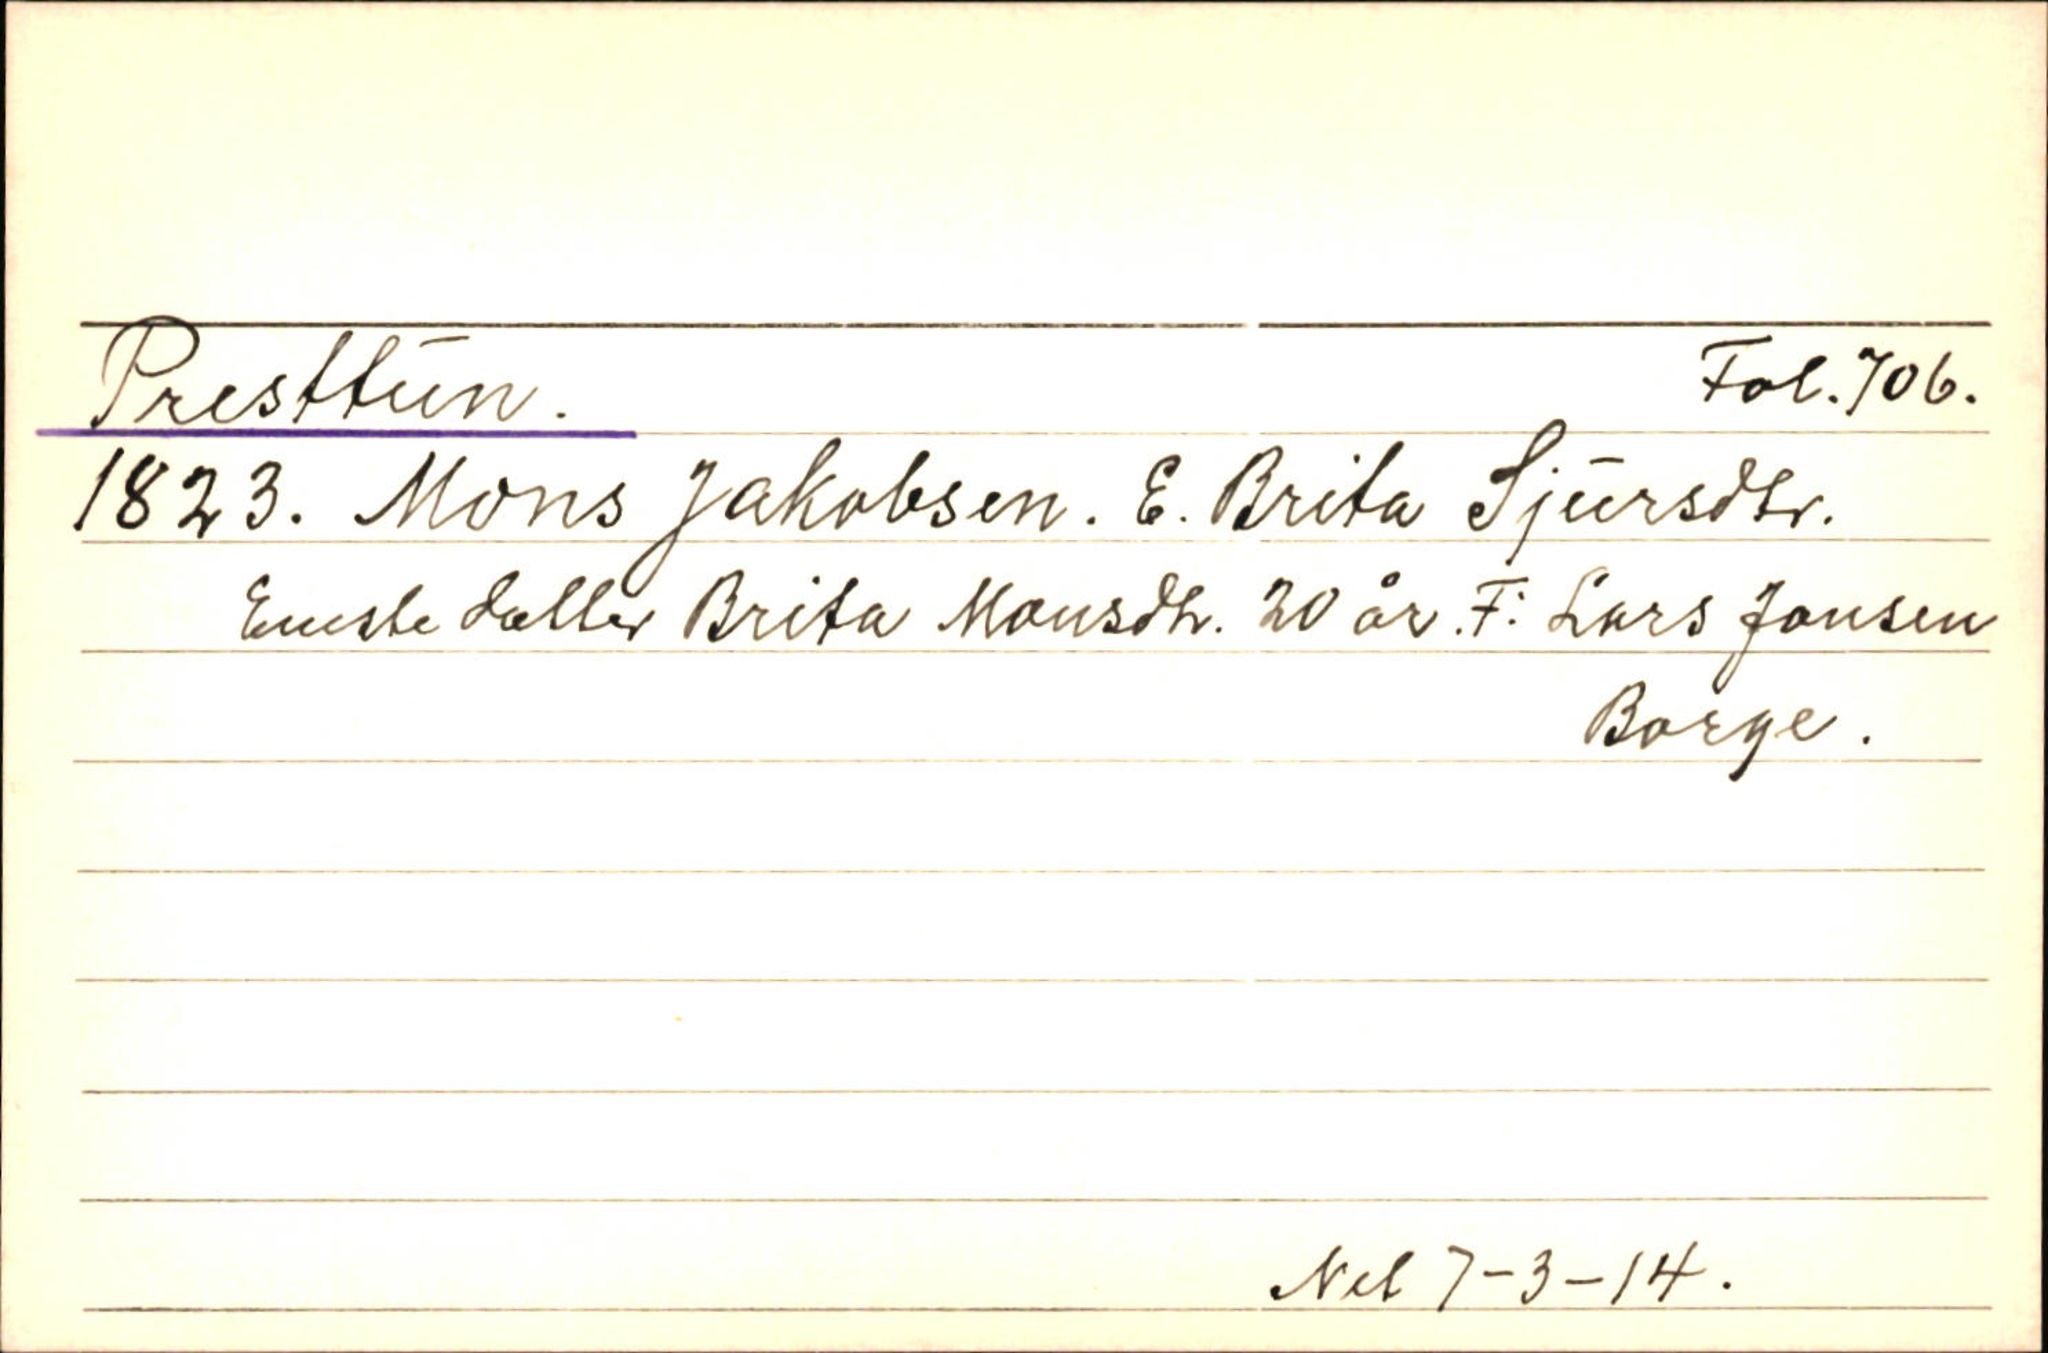 Presttun. Fol. 706.
1823. Mons Jakobsen. E. Brita Sjursdtr.
Eneste datter Brita Monsdtr. 20 år. F: Lars Jonsen
Borge.
Nel 7-3-14.